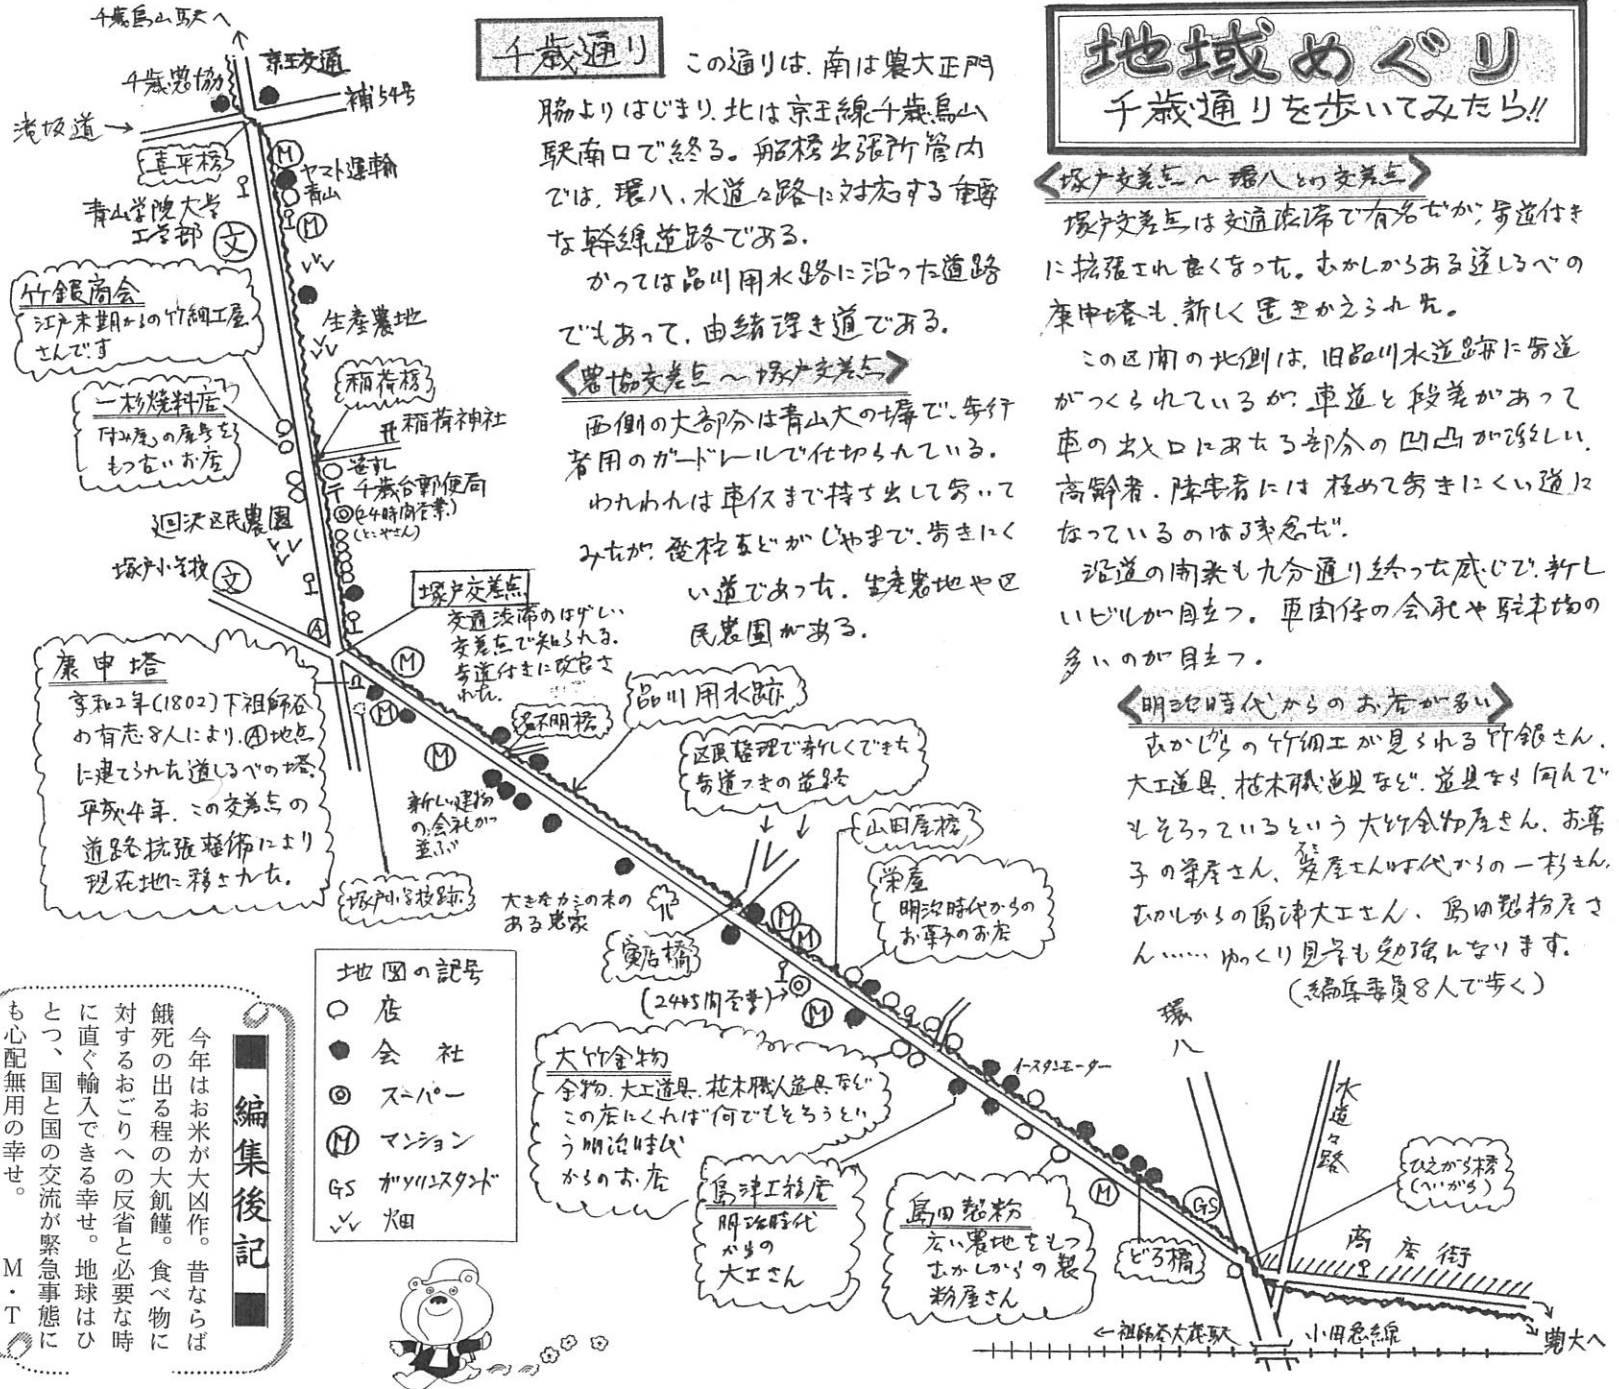 地域めぐり
千歳通りを歩いてみたら!!
千歳通り
この通りは、南は農大正門
脇よりはじまり、北は京王線千歳烏山
駅南口で終る。船橋出張所管内
では、環八、水道々路に対応する重要
な幹線道路である。
かっては品川用水路に沿った道路
でもあって、由緒深き道である。
〈農協交差点〜塚戸交差点〉
西側の大部分は青山大の塀で、歩行
者用のガードレールで仕切られている。
われわれは車イスまで持ち出して歩いて
みたが、電柱などがじゃまで、歩きにく
い道であった。生産農地や区
民農園がある。
〈塚戸交差点〜環八との交差点〉
塚戸交差点は交通渋滞で有名だが、歩道付き
に拡張され良くなった。むかしからある道しるべの
庚申塔も、新しく置きかえられた。
この区間の北側は、旧品川水道跡に歩道
がつくられているが、車道と段差があって
車の出入口にあたる部分の凹凸が激しい。
高齢者・障害者には極めて歩きにくい道に
なっているのは残念だ。
沿道の開発も九分通り終った感じで、新し
いビルが目立つ。車関係の会社や駐車場の
多いのが目立つ。
〈明治時代からのお店が多い〉
むかしからの竹細工が見られる竹銀さん、
大工道具、植木職道具など、道具なら何んで
もそろっているという大竹金物屋さん、お菓
子の栄屋さん、炭屋さん時代からの一杉さん、
むかしからの島津大工さん、島田製粉屋さ
ん……ゆっくり見学も勉強になります。
(編集委員8人で歩く)
千歳烏山駅へ
京王交通
千歳農協
補54号
滝坂道→
喜平橋
Ⓜ
ヤマト運輸
青山
Ⓜ
青山学院大学
工学部
文
竹銀商会
江戸末期からの竹細工屋
さんです
生産農地
稲荷橋
稲荷神社
一杉燃料店
「すみ屋」の屋号を
もつ古いお店
笹すし
〒千歳台郵便局
◎(24時間営業)
(とこやさん)
廻沢区民農園
塚戸小学校
文
塚戸交差点
交通渋滞のはげしい
交差点で知られる。
歩道付きに改良さ
れた。
Ⓐ
庚申塔
享和2年(1802)下祖師谷
の有志8人により、Ⓐ地点
に建てられた道しるべの塔。
平成4年、この交差点の
道路拡張整備により
現在地に移された。
塚戸小学校跡
Ⓜ
Ⓜ
Ⓜ
品川用水跡
新しい建物
の会社が
並ぶ
区民整理で新しくできた
歩道つきの道路
山田屋橋
栄屋
明治時代からの
お菓子のお店
大きなカシの木の
ある農家
Ⓜ
Ⓜ
(24時間営業)→◎
Ⓜ
大竹金物
金物、大工道具、植木職人道具など
この店にくれば何でもそろうとい
う明治時代
からのお店
イースタンモーター
島津工務店
明治時代
からの
大工さん
島田製粉
広い農地をもつ
むかしからの製
粉屋さん
Ⓜ
GS
どろ橋
環八
水道々路
ひえがら橋
(へいがら)
商店街
←祖師谷大蔵駅
小田急線
農大へ
地図の記号
○ 店
● 会社
◎ スーパー
Ⓜ マンション
GS ガソリンスタンド
畑
編集後記
今年はお米が大凶作。昔ならば
餓死の出る程の大飢饉。食べ物に
対するおごりへの反省と必要な時
に直ぐ輸入できる幸せ。地球はひ
とつ、国と国の交流が緊急事態に
も心配無用の幸せ。 M・T